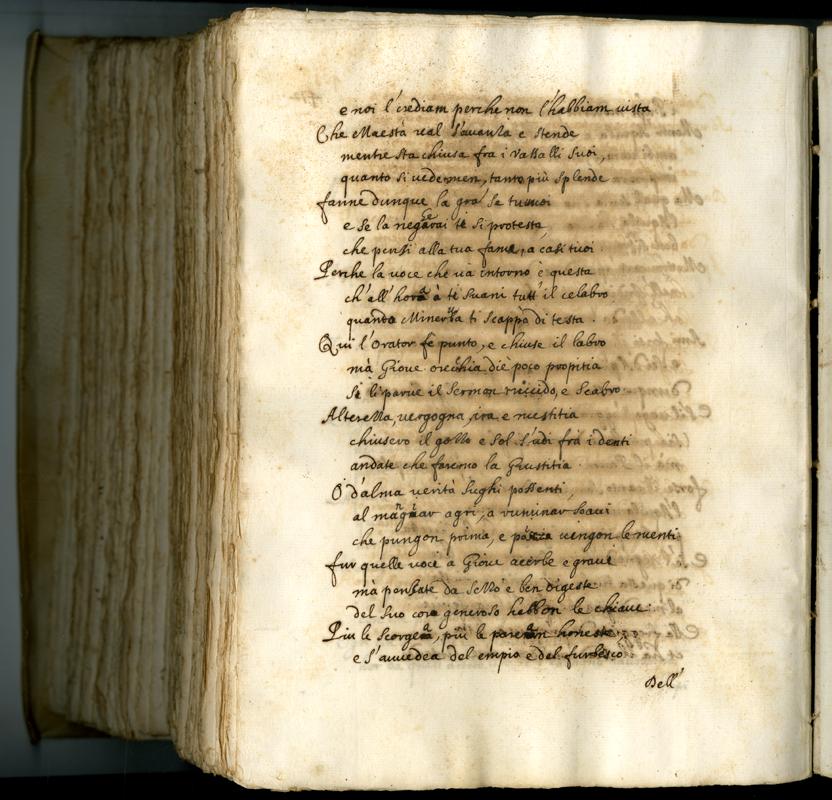 e noi l'crediam perche non l'habbiam uista
Che Maestà real s'auanza e stende
mentre sta chiusa fra i Vassalli suoi,
quanto si uede men, tanto più splende
fanne dunque la gra' se tu uoi
e se la negarai te si protesta
che pensi alla tua fama, a casi tuoi
Perche la uoce che uà intorno è questa
ch'all'hora à te suani tutt'il celabro
quando Minerua ti scappò di testa.
Qui l'Orator fe punto, e chiuse il labro
mà Gioue orecchia diè poco propitia
si li parue il sermon ruuido, e scabro
Alterezza, uergogna, ira e mestitia
chiusero il gozzo e sol s'udì frà i denti
andate che faremo la Giustitia.
O' d'alma uerità sughi possenti,
al mangiar agri, a ruminar soaui
che pungon prima, e poi uengon le menti
fur quelle uoci a Gioue acerbe e graui
mà pensate da sezzo e ben digeste
del suo core generoso hebbon le chiaui
Piu le scorgea, più le parean honeste
e s'auuedea del empio e del furbesco
Dell'